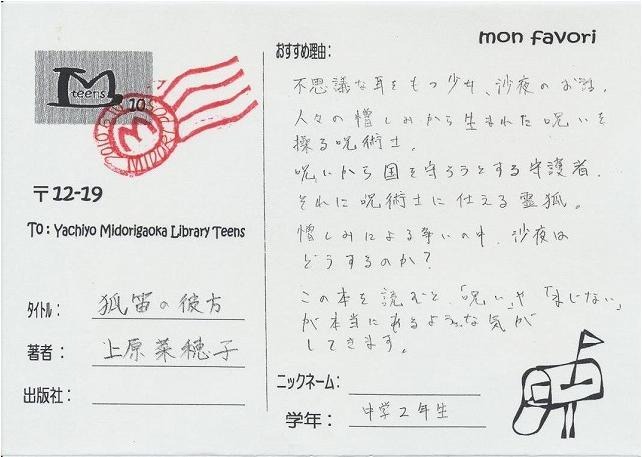 mon favori
teens
10
〒12-19
To : Yachiyo Midorigaoka Library Teens
タイトル： 狐笛の彼方
著者： 上原菜穂子
出版社：
おすすめ理由：
不思議な耳をもつ少女、沙夜のお話。
人々の憎しみから生まれた呪いを
操る呪術士。
呪いから国を守ろうとする守護者。
それに呪術士に仕える霊狐。
憎しみによる争いの中、沙夜は
どうするのか？
この本を読むと、「呪い」や「まじない」
が本当にあるような気が
してきます。
ニックネーム：
学年： 中学2年生